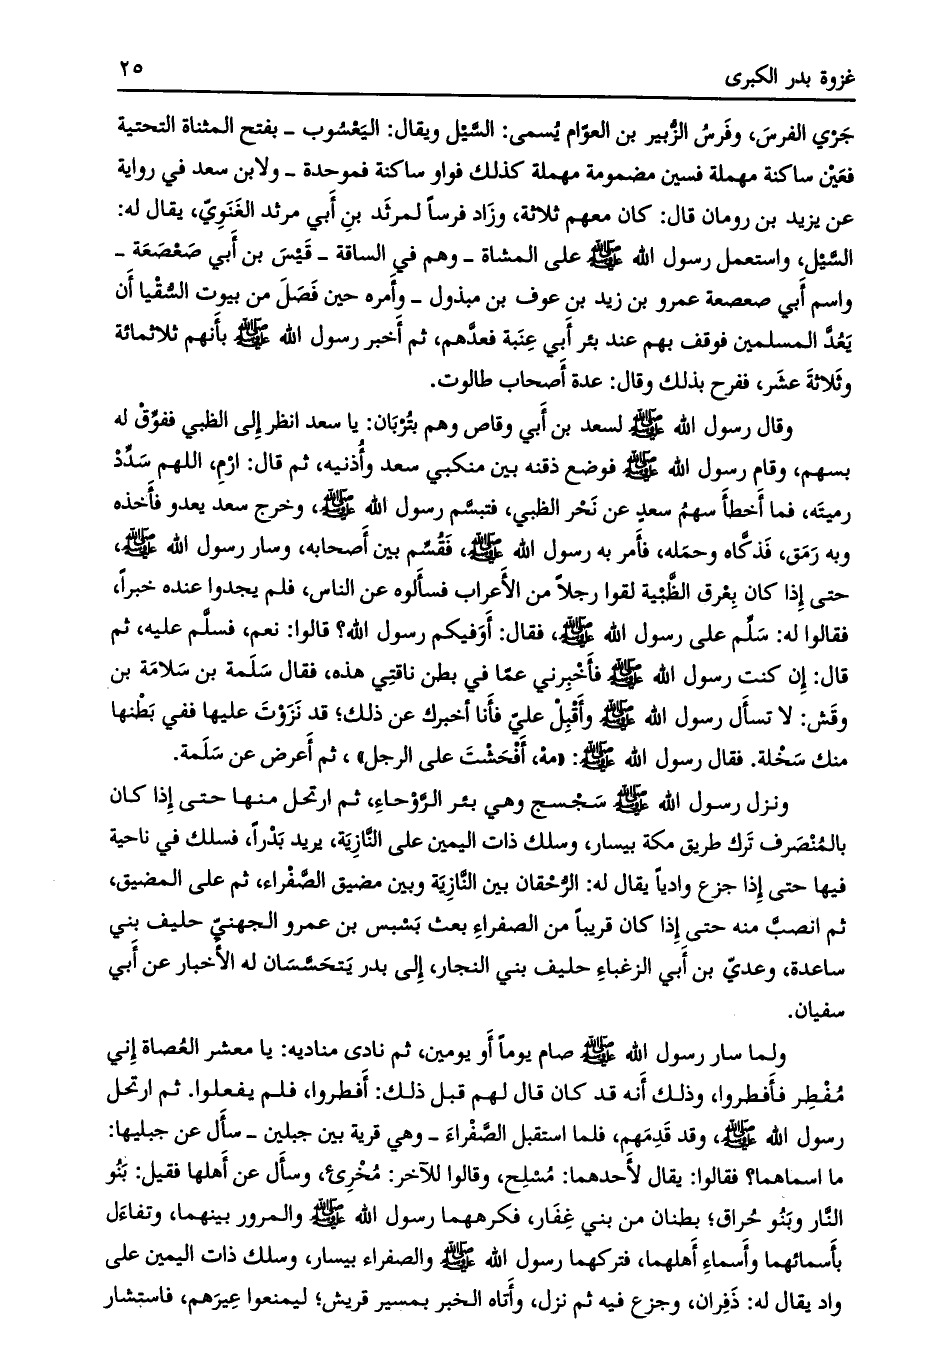 غزوة بدر الكبرى ٢٥
جَرْي الفرسَ، وفَرسُ الزُّبير بن العوّام يُسمى: السَّيْل ويقال: اليَعْسُوب ــ بفتح المثناة التحتية
فعَيْن ساكنة مهملة فسين مضمومة مهملة كذلك فواو ساكنة فموحدة ــ ولابن سعد في رواية
عن يزيد بن رومان قال: كان معهم ثلاثة، وزَاد فرساً لمرثَد بنِ أَبي مرثد الغَنَوِيّ، يقال له:
السَّيْل، واستعمل رسول الله ﷺ على المشاة ــ وهم في الساقة ــ قَيْسَ بن أبي صَعْصَعَة ــ
واسم أَبي صعصعة عمرو بن زيد بن عوف بن مبذول ــ وأَمره حين فَصَلَ من بيوت السُّقْيا أَن
يَعُدَّ المسلمين فوقف بهم عند بئر أَبي عِنَبة فعدَّهم، ثم أَخبر رسول الله ﷺ بأَنهم ثلاثمائة
وثَلاثةَ عشَر، ففرح بذلك وقال: عدة أَصحاب طالوت.
وقال رسول الله ﷺ لسعد بن أَبي وقاص وهم بتُرْبَان: يا سعد انظر إِلى الظبي ففوِّقْ له
بسهم، وقام رسول الله ﷺ فوضع ذقنه بين منكبي سعد وأُذنيه، ثم قال: ارْمِ، اللهم سَدِّدْ
رميتَه، فما أَخطأَ سهمُ سعدٍ عن نَحْر الظبي، فتبسَّم رسول الله ﷺ، وخرج سعد يعدو فأَخذه
وبه رَمَق، فَذكَّاه وحمَله، فأَمر به رسول الله ﷺ، فَقُسِّم بين أَصحابه، وسار رسول الله ﷺ،
حتى إِذا كان بِعْرق الظَّبْية لقوا رجلاً من الأَعراب فسأَلوه عن الناس، فلم يجدوا عنده خبراً،
فقالوا له: سَلِّم على رسول الله ﷺ، فقال: أَوَفيكم رسول الله؟ قالوا: نعم، فسلَّم عليه، ثم
قال: إِن كنت رسول الله ﷺ فأَخْبِرني عمّا في بطن ناقتِي هذه، فقال سَلَمة بن سَلامَة بن
وقَش: لا تسأَل رسول الله ﷺ وأَقْبِلْ عليّ فأَنا أخبرك عن ذلك؛ قد نَزَوْتَ عليها ففي بَطْنها
منك سَخْلة. فقال رسول الله ﷺ: «مهْ، أَفْحَشْتَ على الرجل» ، ثم أَعرض عن سَلَمة.
ونزل رسول الله ﷺ سَجْسج وهي بئر الرَّوْحاءِ، ثم ارتحل منها حتى إذا كان
بالمُنْصَرف تَرك طريق مكة بيسار، وسلك ذات اليمين على النَّازِيَة، يريد بَدْراً، فسلك في ناحية
فيها حتى إِذا جزع وادياً يقال له: الرُّحْقان بين النَّازِيَة وبين مضيق الصَّفْراء، ثم على المضيق،
ثم انصبَّ منه حتى إِذا كان قريباً من الصفراءِ بعث بَسْبس بن عمرو الجهنيّ حليف بني
ساعدة، وعديّ بن أَبي الزغباءِ حليف بني النجار، إِلى بدر يَتحَسَّسَان له الأَخبار عن أَبي
سفيان.
ولما سار رسول الله ﷺ صام يوماً أَو يومين، ثم نادى مناديه: يا معشر العُصاة إِني
مُفْطِر فأَفطروا، وذلك أَنه قد كان قال لهم قبل ذلك: أَفطروا، فلم يفعلوا. ثم ارتحل
رسول الله ﷺ، وقد قَدِمَهم، فلما استقبل الصَّفْراءَ ــ وهي قرية بين جبلين ــ سأَل عن جبليها:
ما اسماهما؟ فقالوا: يقال لأَحدهما: مُسْلِح، وقالوا للآخر: مُخْرِئ، وسأَل عن أَهلها فقيل: بَنُو
النَّار وبَنُو حُراق؛ بطنان من بني غِفَار، فكرههما رسول الله ﷺ والمرور بينهما، وتفاءَل
بأَسمائهما وأَسماءِ أَهلهما، فتركهما رسول الله ﷺ والصفراء بيسار، وسلك ذات اليمين على
واد يقال له: ذَفِران، وجزع فيه ثم نزل، وأَتاه الخبر بمسير قريش؛ ليمنعوا عِيرَهم، فاستشار